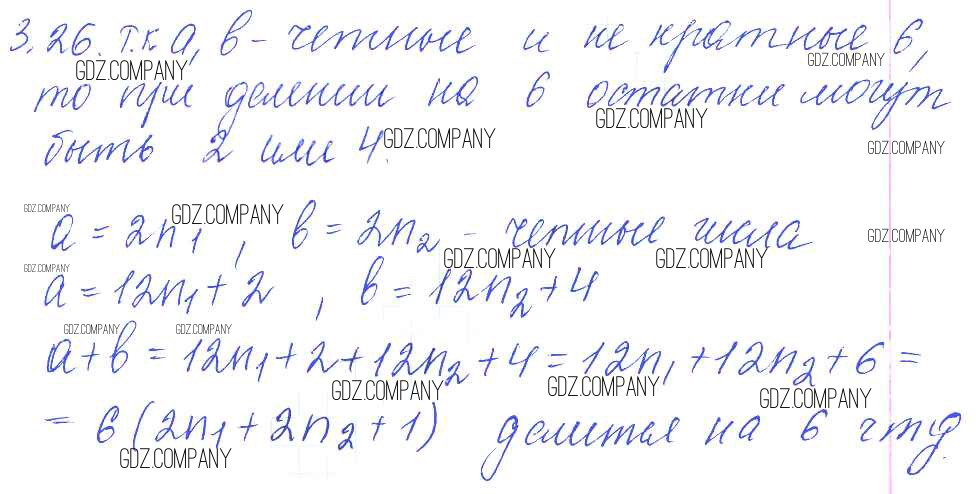 3.26. Т.к а, в - четные и не кратные 6,
GDZ.COMPANY GDZ.COMPANY
то при делении на 6 остатки могут
GDZ.COMPANY
быть 2 или 4.
GDZ.COMPANY GDZ.COMPANY
GDZ.COMPANY GDZ.COMPANY
а = 2n₁, в = 2n₂ - четные числа
GDZ.COMPANY
GDZ.COMPANY GDZ.COMPANY GDZ.COMPANY
а = 12n₁ + 2, в = 12n₂ + 4
GDZ.COMPANY GDZ.COMPANY
а + в = 12n₁ + 2 + 12n₂ + 4 = 12n₁ + 12n₂ + 6 =
GDZ.COMPANY GDZ.COMPANY GDZ.COMPANY
= 6 (2n₁ + 2n₂ + 1) делится на 6 чтд.
GDZ.COMPANY